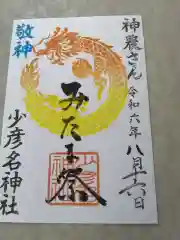 神農さん
令和六年
八月十六日
敬神
みたま祭
少彦名神社